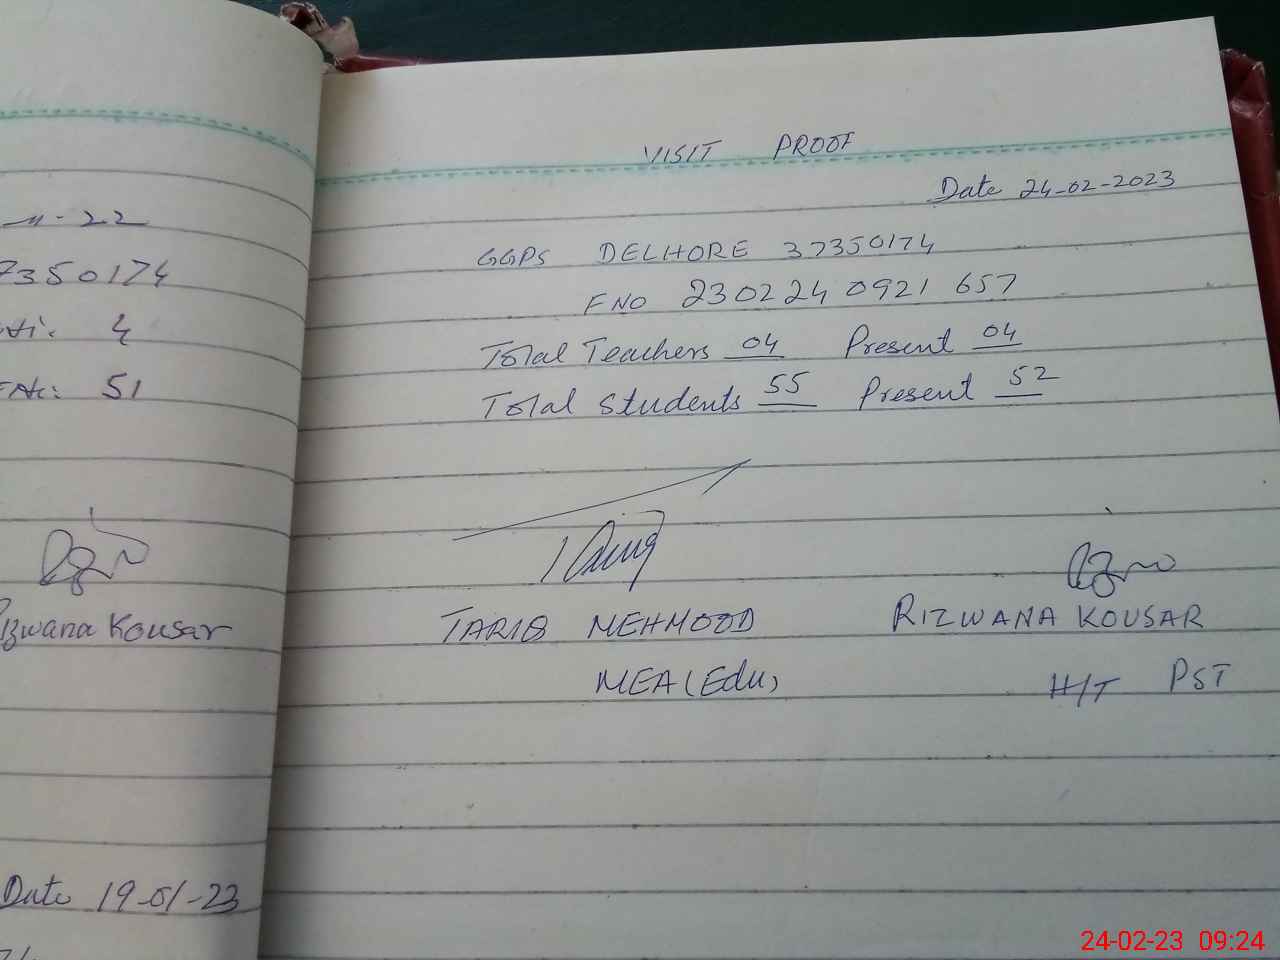 11-22
7350174
4
51
Rizwana Kousar
Date 19-01-23
VISIT PROOF
Date 24-02-2023
GGPS DELHORE 37350174
FNO 230224 0921 657
Total Teachers 04 Present 04
Total Students 55 Present 52
TARIQ MEHMOOD
RIZWANA KOUSAR
MEA (Edu)
H/T PST
24-02-23 09:24